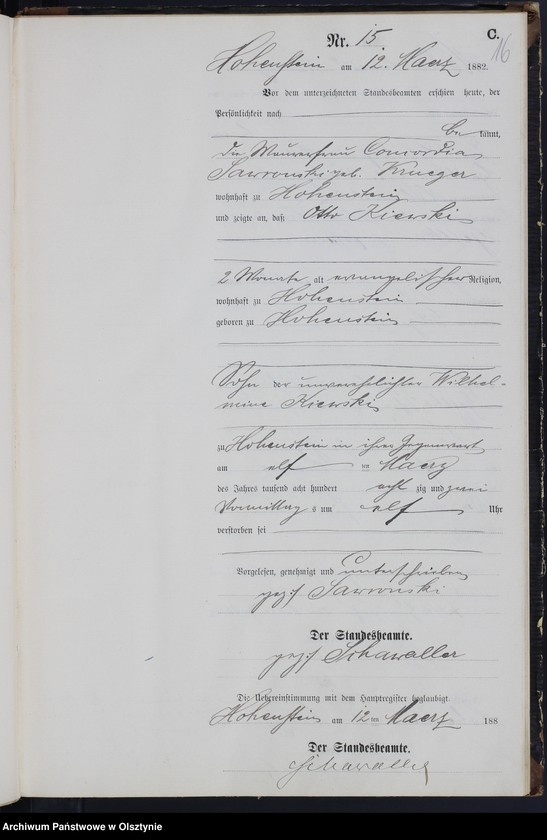 C.
16
Nr. 15.
Hohenstein am 12. Maerz 1882.
Vor dem unterzeichneten Standesbeamten erschien heute, der
Persönlichkeit nach
be kannt,
die Maurerfrau Concordia
Sawronski geb. Krueger
wohnhaft zu Hohenstein
und zeigte an, daß Otto Kiewski
2 Monate alt evangelischer Religion,
wohnhaft zu Hohenstein
geboren zu Hohenstein
Sohn der unverehelichten Wilhel-
mine Kiewski
zu Hohenstein in ihrer Gegenwart
am elf ten Maerz
des Jahres tausend acht hundert acht zig und zwei
Vormittag s um elf Uhr
verstorben sei
Vorgelesen, genehmigt und unterschrieben
gez: Sawronski
Der Standesbeamte.
gez: Schawaller
Die Uebereinstimmung mit dem Hauptregister beglaubigt
Hohenstein am 12 ten Maerz 188
Der Standesbeamte.
Schawaller
Archiwum Państwowe w Olsztynie